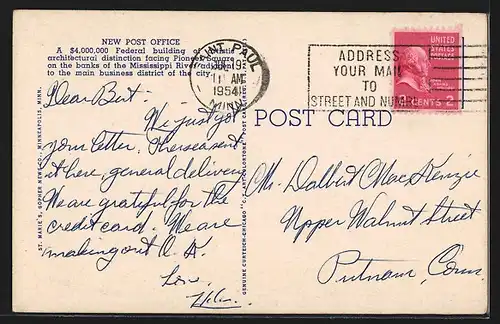 NEW POST OFFICE
A $4,000,000 Federal building of artistic
architectural distinction facing Pioneer Square
on the banks of the Mississippi River adjacent
to the main business district of the city.
SAINT PAUL
19
11 AM
1954
MINN.
ADDRESS
YOUR MAIL
TO
STREET AND NUMBER
UNITED
STATES
POSTAGE
CENTS 2
POST CARD
ST. MARIE'S GOPHER NEWS CO., MINNEAPOLIS, MINN.
GENUINE CURTEICH-CHICAGO "C. T. ART-COLORTONE" POST CARD
Dear Bert:
We just got
your letter. Theresa sent
it here, general delivery
We are grateful for the
credit card. We are
making out O.K.
Love,
Mr. Dalbert MacKenzie
Upper Walnut Street
Putnam, Conn.